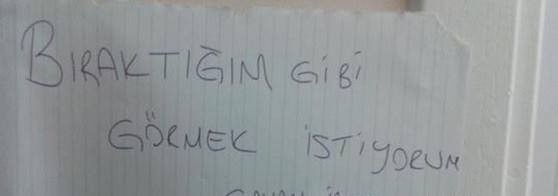 BIRAKTIĞIM GİBİ
GÖRMEK İSTİYORUM